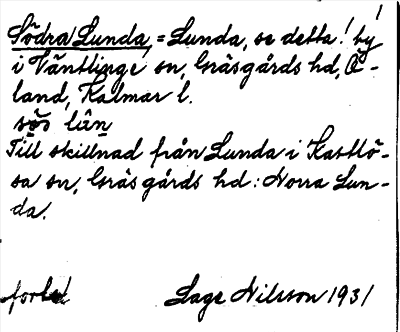 Södra Lunda, = Lunda, se detta! by
i Ventlinge sn, Gräsgårds hd, Ö-
land, Kalmar l.
sö̀s lu̇n
Till skillnad från Lunda i Kastlö-
sa sn, Gräsgårds hd: Norra Lun-
da.
forled
Lage Nilsson 1931